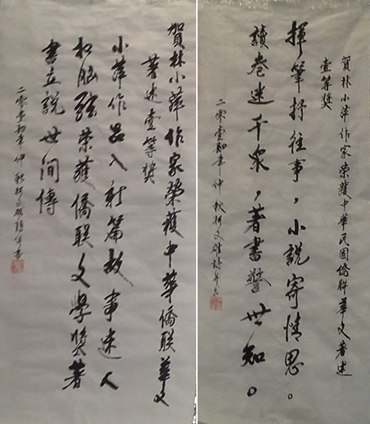 賀林小萍作家榮獲中華僑聯華文
著述壹等獎
小萍作品入射篇故事迷人
扣腦弦榮獲僑聯文學獎著
書立說世間傳
二零壹四年仲秋
賀林小萍作家榮獲中華民國僑聯華文著述
壹等獎
揮筆抒往事,小說寄情思。
讀卷迷千眾,著書警世知。
二零壹四年仲秋